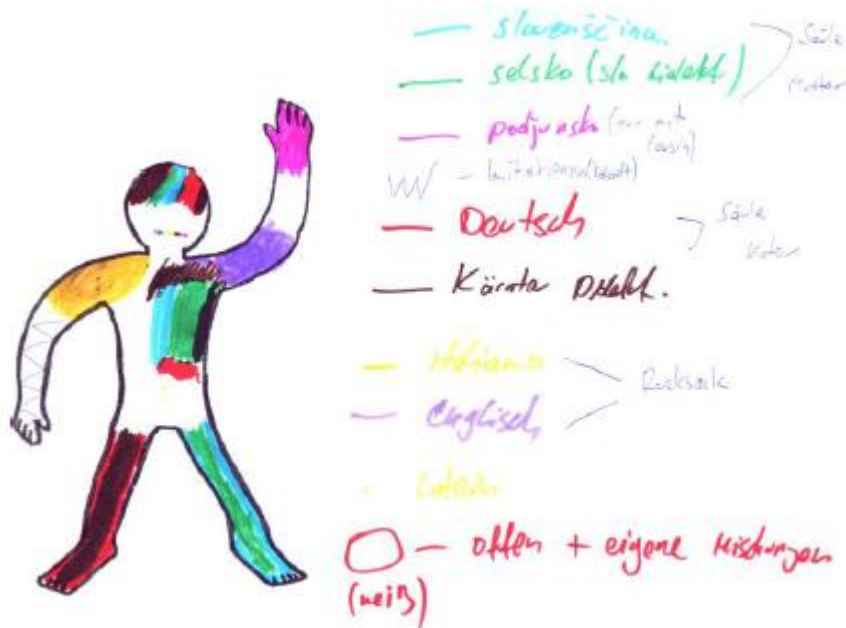 slovenščina
selsko (slo dialekt)
Säule
Mutter
podjunsko (nur mit
Deutsch
Säule
Vater
Kärnta Dialekt.
Italiano
Rucksack
Englisch
Latein
offen + eigene Mischungen
(weiß)